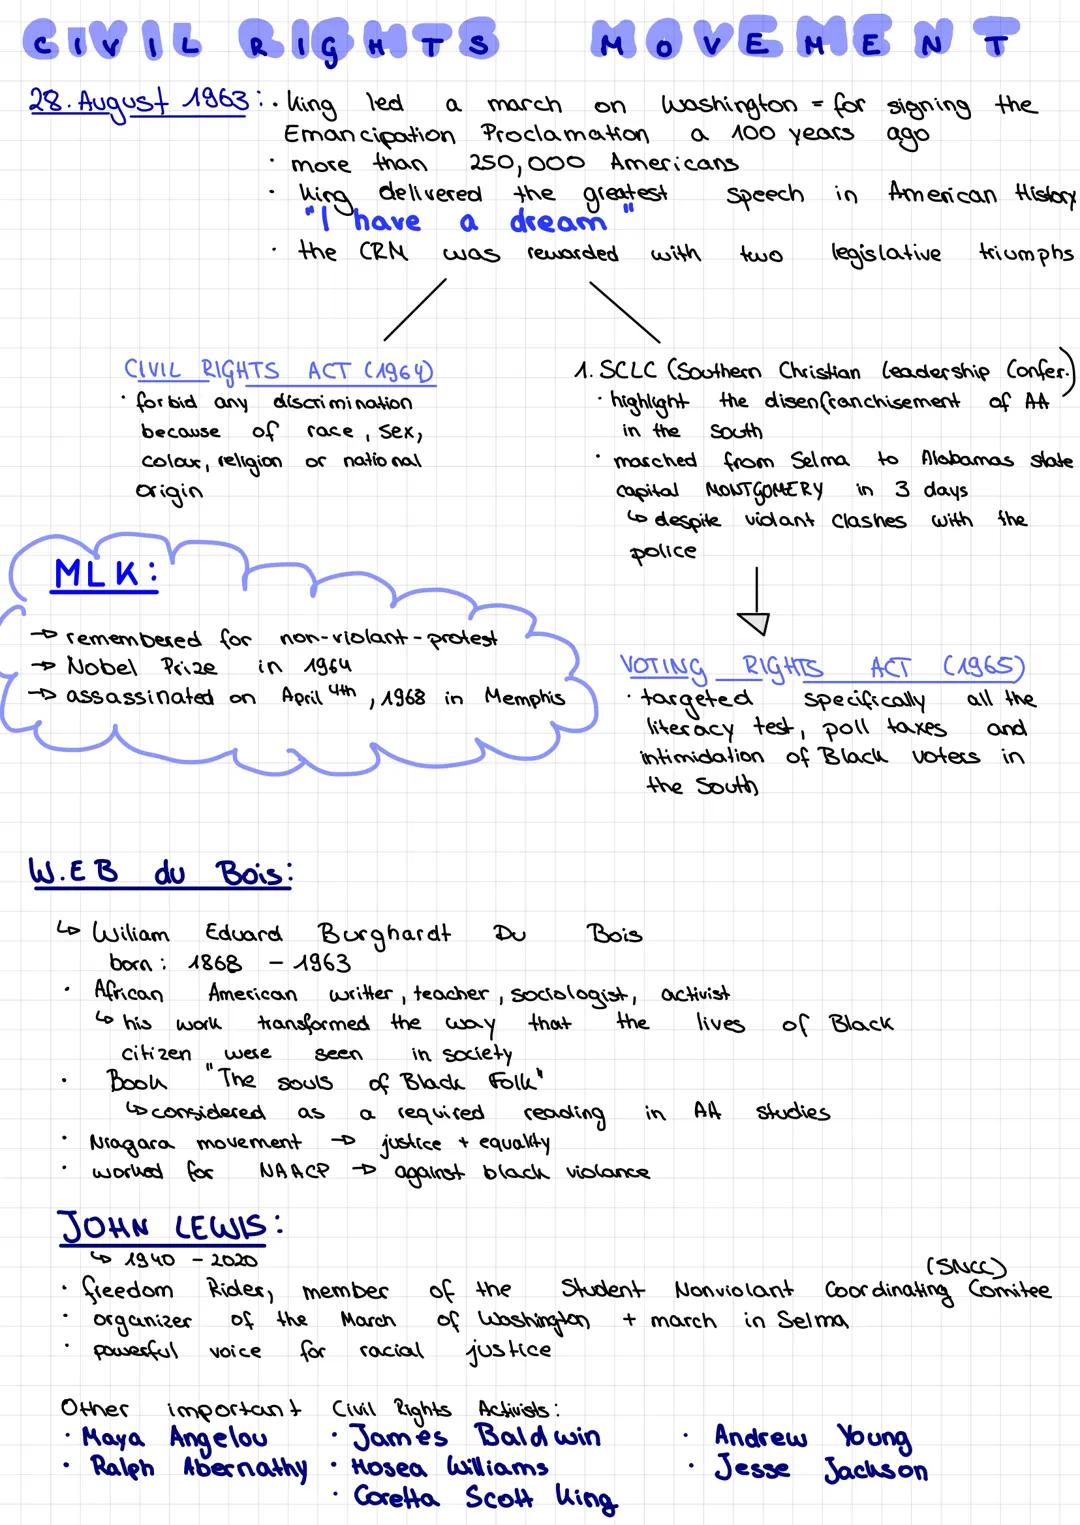 CIVIL RIGHTS MOVEMENT
28. August 1963: · King led a march on Washington = for signing the
Emancipation Proclamation a 100 years ago
· more than 250,000 Americans
· King delivered the greatest speech in American History
"I have a dream"
· the CRM was rewarded with two legislative triumphs
CIVIL RIGHTS ACT (1964)
· forbid any discrimination
because of race, sex,
colour, religion or national
origin
1. SCLC (Southern Christian Leadership Confer.)
· highlight the disenfranchisement of AA
in the South
· marched from Selma to Alabamas state
capital MONTGOMERY in 3 days
↳ despite violant clashes with the
police
MLK:
→ remembered for non-violant-protest
→ Nobel Prize in 1964
→ assassinated on April 4th, 1968 in Memphis
VOTING RIGHTS ACT (1965)
· targeted specifically all the
literacy test, poll taxes and
intimidation of Black voters in
the South
W.E B du Bois:
↳ Wiliam Eduard Burghardt Du Bois
born: 1868 - 1963
· African American writter, teacher, sociologist, activist
↳ his work transformed the way that the lives of Black
citizen were seen in society
· Book "The souls of Black Folk"
↳ considered as a required reading in AA studies
· Niagara movement → justice + equality
· worked for NAACP → against black violance
JOHN LEWIS:
↳ 1940 - 2020
(SNCC)
· freedom Rider, member of the Student Nonviolant Coordinating Comitee
· organizer of the March of Washington + march in Selma
· powerful voice for racial justice
Other important Civil Rights Activists:
· Maya Angelou · James Baldwin · Andrew Young
· Ralph Abernathy · Hosea Williams · Jesse Jackson
· Coretta Scott King